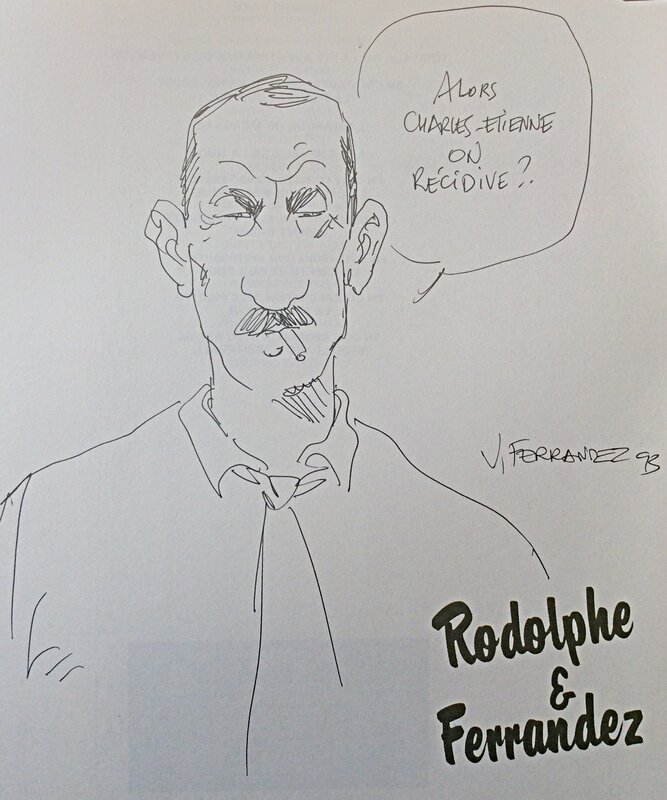 ALORS
CHARLES-ETIENNE
ON
RÉCIDIVE ?!
J, FERRANDEZ 93
Rodolphe
&
Ferrandez